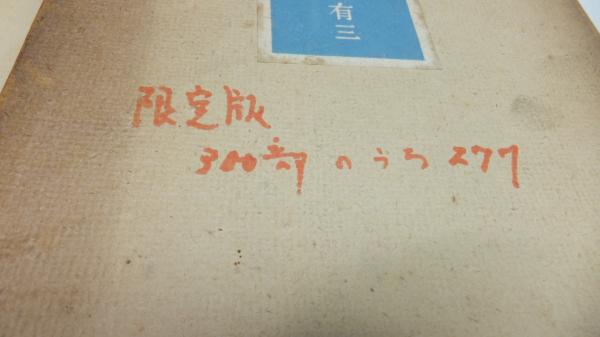 有三
限定版
300部のうち277